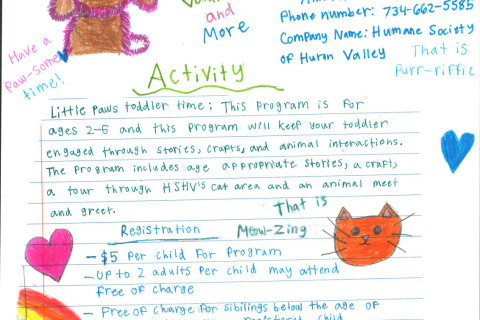 and
More
Phone number: 734-662-5585
Company Name: Humane Society
of Huron Valley
That is
Purr-riffic
Have a
Paw-some
time!
Activity
Little Paws toddler time: This program is for
ages 2-5 and this program will keep your toddler
engaged through stories, crafts, and animal interactions.
The program includes age appropriate stories, a craft,
a tour through HSHV's cat area and an animal meet
and greet.
That is
Meow-Zing
Registration
- $5 Per child for program
- Up to 2 adults per child may attend
free of charge
- Free of charge for sibilings below the age of